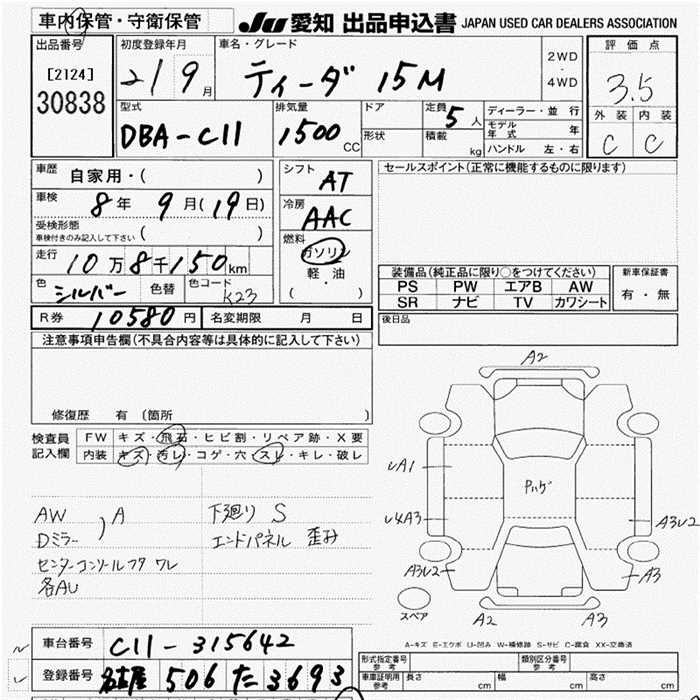 車内保管・守衛保管
JU 愛知 出品申込書 JAPAN USED CAR DEALERS ASSOCIATION
出品番号
[2124]
30838
初度登録年月
21 9月
車名・グレード
ティーダ 15M
2WD
・
4WD
評価点
3.5
外装 内装
C C
型式
DBA-C11
排気量
1500 CC
ドア
形状
定員 5人
積載 kg
ディーラー・並行
モデル年式 年
ハンドル 左・右
車歴 自家用・( )
車検 8年 9月(19日)
受検形態
車検付きのみ記入して下さい ( )
走行 10万8千150km
色 シルバー 色替 色コード K23
シフト AT
冷房 AAC
燃料 ガソリン
軽・油
( )
セールスポイント(正常に機能するものに限ります)
装備品(純正品に限り○をつけてください)
PS PW エアB AW
SR ナビ TV カワシート
新車保証書
有・無
R券 10580円 名変期限 月 日
後日品
注意事項申告欄(不具合内容等は具体的に記入して下さい)
修復歴 有 〔箇所 〕
検査員記入欄
FW キズ・飛石・ヒビ割・リペア跡・X要
内装 キズ・汚レ・コゲ・穴・スレ・キレ・破レ
AW
Dミラー ) A
センターコンソールフタ ワレ
各AU
下廻り S
エンドパネル 歪み
A2
A1
A3
A3U2
A3U2
A3
A2
A3
スペア
A-キズ E-エクボ U-凹み W-補修跡 S-サビ C-腐食 XX-交換済
車台番号 C11-315642
登録番号 名古屋 506 た 3693
形式指定番号 参考
類別区分番号 参考
車庫証明用 参考 長さ cm 幅 cm 高さ cm